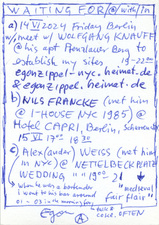 WAITING FOR @/with/in
a) 14 VI 2024 Friday Berlin
w/meet w/ WOLFGANG KNAUFF
@ his apt Prenzlauer Berg to
establish my sites 19-22:00
egonzippel-nyc.heimat.de
& egonzippel.heimat.de
b) NILS FRANCKE (met him
@ I-HOUSE NYC 1985) @
Hotel CAPRI, Berlin,
15 VI 1777 18:30
c) Alex(ander) WEISS (met him
in NYC) @ NETTELBECKPLATZ
WEDDING 19:00 21
when he was a bartender
I went to his bar around
01-03 in the morning for
COKE, OFTEN
"medieval
fair flair"
Egon
A